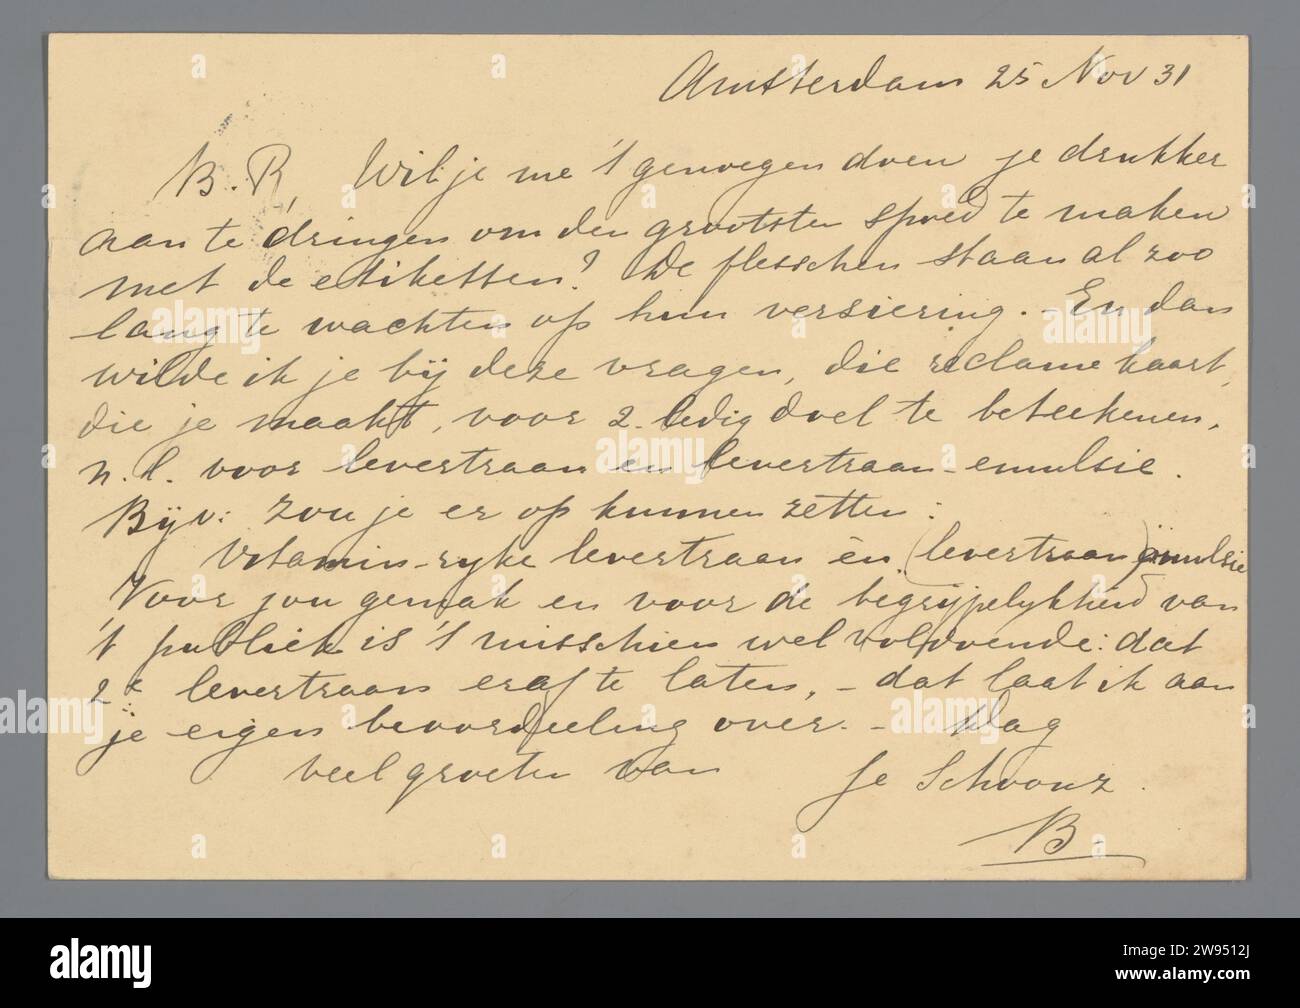 Amsterdam 25 Nov 31
B. R, Wil je me 't genoegen doen je drukker
aan te dringen om den grootsten spoed te maken
met de etiketten? De flesschen staan al zoo
lang te wachten op hun versiering. - En dan
wilde ik je bij deze vragen, die reclame kaart,
die je maakt, voor 2 ledig doel te beteekenen,
n.l. voor levertraan en levertraan-emulsie.
Bijv: zou je er op kunnen zetten:
Vitamin-ryke levertraan èn (levertraan) emulsie
Voor jou gemak en voor de begrijpelykheid van
't publiek is 't misschien wel voldoende: dat
2e levertraan eraf te laten, - dat laat ik aan
je eigen beoordeeling over. - Dag
veel groeten van je Schoonz.
B
alamy
Image ID: 2W9512J
www.alamy.com